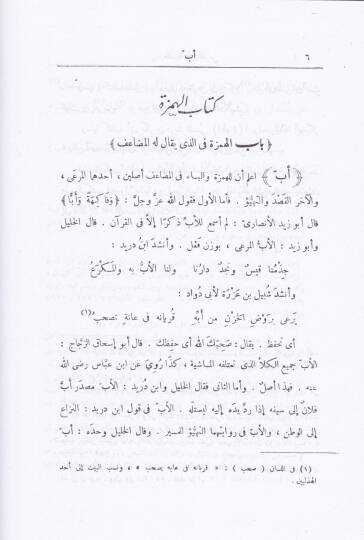 ٦ أبّ
كتاب الهمزة
﴿ باب الهمزة فى الذى يقال له المضاعف ﴾
﴿ أبّ ﴾ اعلم أن للهمزة والباء فى المضاعف أصلين ، أحدهما المرعى ،
والآخر القَصْد والتهيُّؤ . فأما الأول فقول الله عزّ وجلّ : ﴿ وَفَاكِهَةً وَأَبًّا ﴾
قال أبو زيد الأنصارىّ : لم أسمع للأبّ ذكرًا إلاّ فى القرآن . قال الخليل
وأبو زيد : الأبُّ المرعى ، بوزن فَعْل . وأنشد ابنُ دريد :
جِذْمُنا قيسٌ ونجدٌ دارُنا ولنا الأبُّ به والمَكْرَعُ
وأنشدَ شُبيل بن عَزْرَة لأبى دواد :
يَرعى برَوْضِ الحَزْنِ من أَبِّهِ قُريانَه فى عانةٍ تصحبُ (١)
أى تحفظ . يقال : صَحِبَكَ اللهُ أى حفِظك . قال أبو إسحاق الزجّاج :
الأبّ جميع الكلأ الذى تعتلفه الماشية ، كذا رُوىَ عن ابن عبّاس رضى الله
عنه . فهذا أصلٌ . وأما الثانى فقال الخليل وابن دُريد : الأبّ مصدر أبَّ
فلانٌ إلى سيفه إذا ردّ يدَه إليه ليستلّه . الأبّ فى قول ابن دريد : النزاع
إلى الوطن ، والأبّ فى روايتهما التهيُّؤ للمسير . وقال الخليل وحدَه : أبّ
(١) فى اللسان ( صحب ) : « قربانه فى عابه يصحب » ، ونسب البيت إلى أحد
الهذليين .